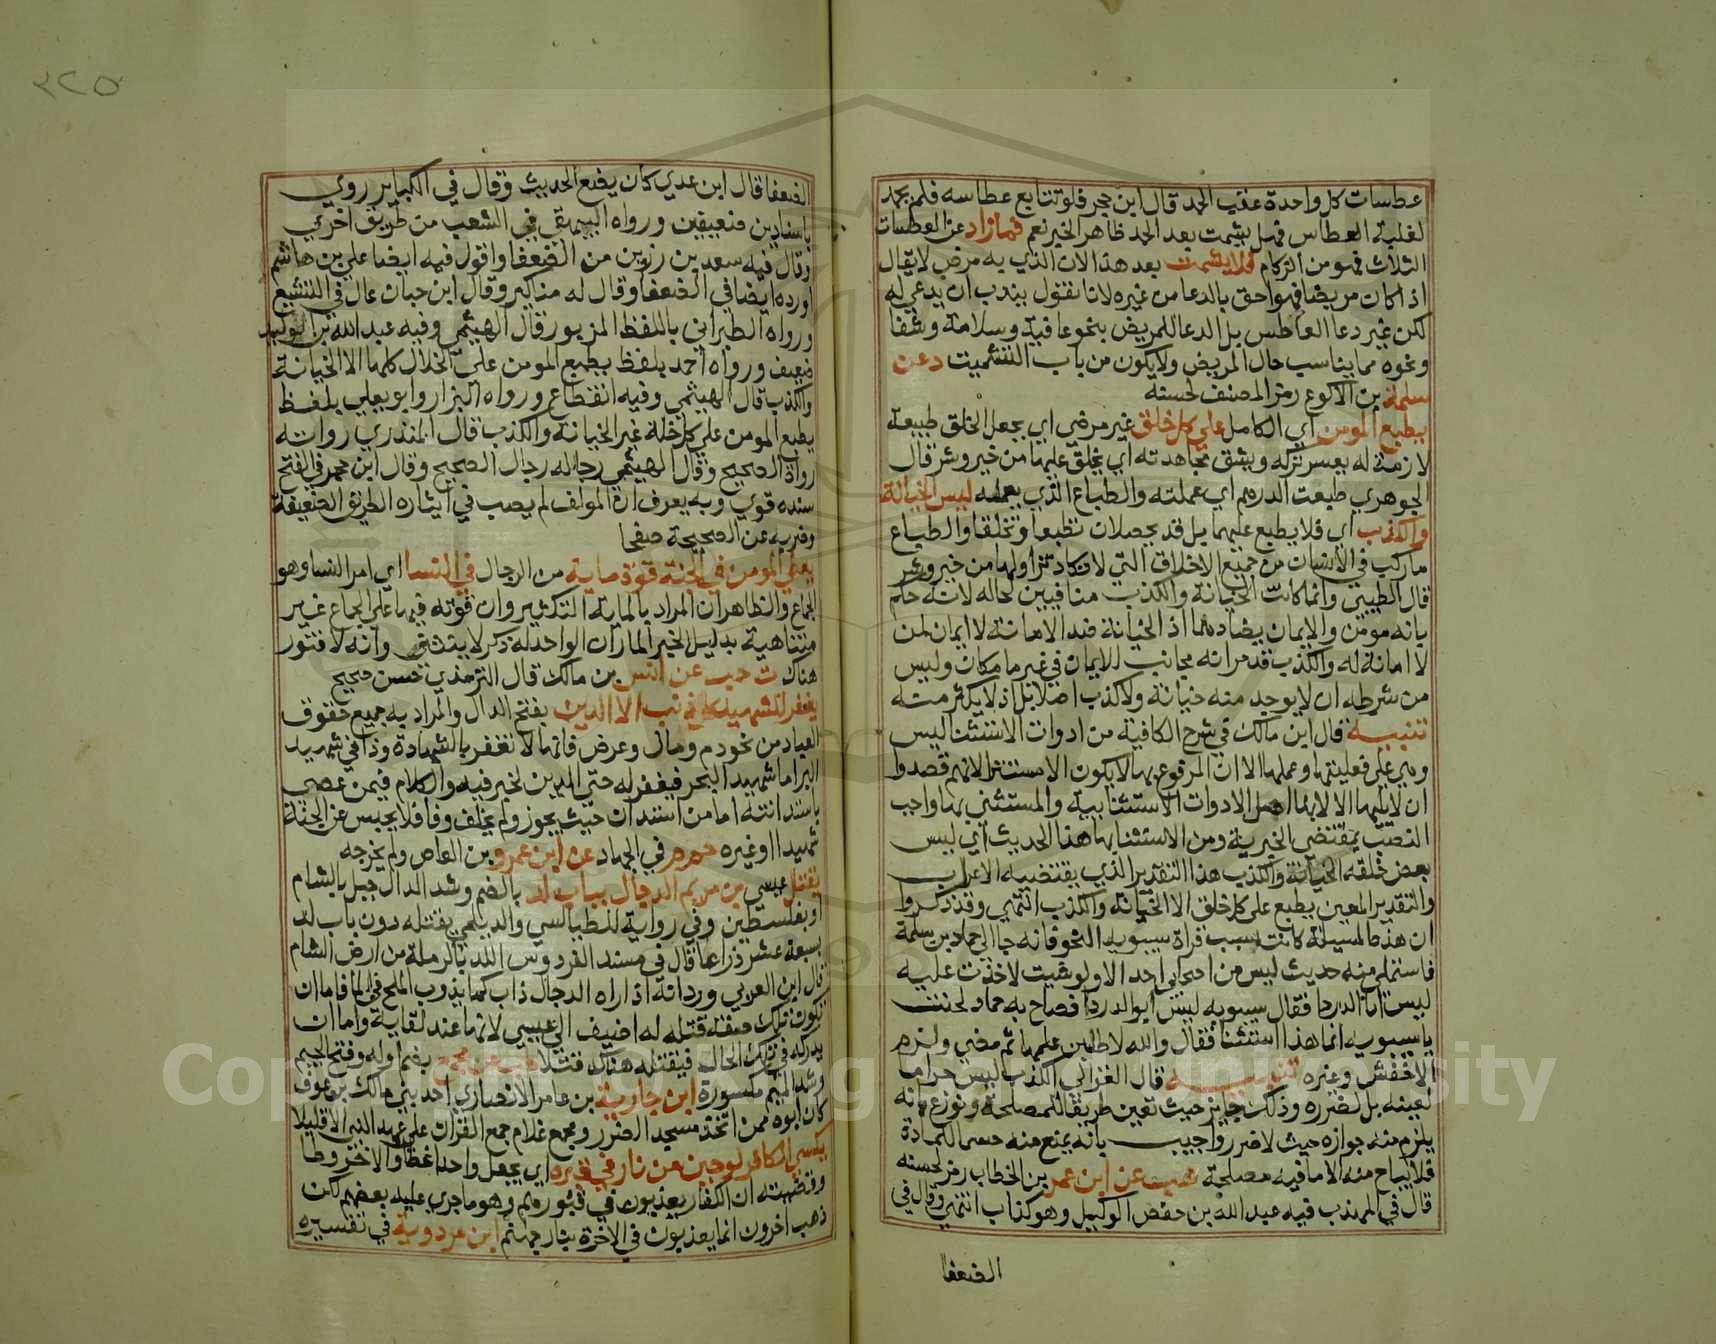 عطسات كل واحدة عقب الحمد قال ابن حجر فلو تتابع عطاسه فلم يحمد
لغلبة العطاس فهل يشمت بعد الحمد ظاهر الخبر نعم فما زاد عن العطسات
الثلاث فهو من الزكام فلا يشمت بعد هذا لان الذي به مرض لا يقال
اذا كان مريضا فهو احق بالدعا من غيره لانا نقول يندب ان يدعي له
لكن غير دعا العاطس بل الدعا للمريض بنحو عافية وسلامة وشفا
ونحوه مما يناسب حال المريض ولا يكون من باب التشميت د عن
سلمة بن الاكوع رمز المصنف لحسنه
يطبع المومن اي الكامل علي كل خلق غير مرضي اي يجعل الخلق طبيعة
لازمة له يعسر تركه ويشق مجاهدته اي يخلق عليها من خير وشر قال
الجوهري طبعت الدرهم اي عملته والطباع الذي يعمله ليس الخيانة
والكذب اي فلا يطبع عليهما بل قد يحصلان تطبعا وتخلقا والطباع
ما ركب في الانسان من جميع الاخلاق التي لا يكاد يزاولها من خير وشر
قال الطيبي وانما كانت الخيانة والكذب منافيين لحاله لانه حكم
بانه مومن والايمان يضادهما اذ الخيانة ضد الامانة لا ايمان لمن
لا امانة له والكذب قد مر انه مجانب للايمان في غير ما مكان وليس
من شرطه ان لا يوجد منه خيانة ولا كذب اصلا بل اذ لا يكثر منه
تنبيه قال ابن مالك في شرح الكافية من ادوات الاستثنا ليس
وهي علي فعليتها وعملها الا ان المرفوع بها لا يكون الا مستترا لانهم قصدوا
ان لا يليها الا لانها اصل الادوات الاستثنايية والمستثني بها واجب
النصب بمقتضي الخبرية ومن الاستثنا بها هذا الحديث اي ليس
بعض خلقه الخيانة والكذب هذا التقدير الذي يقتضيه الاعراب
والتقدير المعين يطبع علي كل خلق الا الخيانة والكذب انتهي وقد ذكروا
ان هذه المسيلة كانت سبب قراة سيبويه النحو فانه جا الي حماد بن سلمة
فاستملي منه حديث ليس من اصحابي احد الا ولو شيت لاخذت عليه
ليس ابا الدردا فقال سيبويه ليس ابو الدردا فصاح به حماد لحنت
يا سيبويه انما هذا استثنا فقال والله لاطلبن علما ثم مضي ولزم
الاخفش وغيره تنبيه قال الغزالي الكذب ليس حراما
لعينه بل لضرره وذلك جايز حيث تعين طريقا للمصلحة ونوزع بانه
يلزم منه جوازه حيث لا ضرر واجيب بانه يمنع منه حسما للمادة
فلا يباح منه الا ما فيه مصلحة هب عن ابن عمر بن الخطاب رمز لحسنه
قال في المهذب فيه عبد الله بن حفص الوكيل وهو كذاب انتهي وقال في
الضعفا
٣٢٥
الضعفا قال ابن عدي كان يضع الحديث وقال في الكباير روي
باسنادين ضعيفين ورواه البيهقي في الشعب من طريق اخري
وقال فيه سعيد بن رزين من الضعفا واقول فيه ايضا علي بن هاشم
اورده ايضا في الضعفا وقال له مناكير وقال ابن حبان غال في التشيع
ورواه الطبراني باللفظ المزبور قال الهيثمي وفيه عبد الله بن الوليد
ضعيف ورواه احمد بلفظ يطبع المومن علي الخلال كلها الا الخيانة
والكذب قال الهيثمي وفيه انقطاع ورواه البزار وابو يعلي بلفظ
يطبع المومن علي كل خلة غير الخيانة والكذب قال المنذري رواته
رواة الصحيح وقال الهيثمي رجاله رجال الصحيح وقال ابن حجر في الفتح
سنده قوي وبه يعرف ان المولف لم يصب في ايثاره الطريق الضعيفة
وضربه عن الصحيحة صفحا
يعطي المومن في الجنة قوة ماية من الرجال في النسا اي امر النسا وهو
الجماع والظاهر ان المراد بالماية التكثير وان قوته فيها علي الجماع غير
متناهية بدليل الخبر المار ان الواحد له ذكر لا ينثني وانه لا فتور
هناك ت حب عن انس بن مالك قال الترمذي حسن صحيح
يغفر للشهيد كل ذنب الا الدين بفتح الدال والمراد به جميع حقوق
العباد من نحو دم ومال وعرض فانها لا تغفر بالشهادة وذا في شهيد
البر اما شهيد البحر فيغفر له حتي الدين لخبر فيه والكلام فيمن عصي
باستدانته اما من استدان حيث يجوز ولم يخلف وفا فلا يحبس عن الجنة
شهيدا او غيره حم م في الجهاد عن ابن عمرو بن العاص ولم يخرجه
يقتل عيسي بن مريم الدجال بباب لد بالضم وشد الدال جبل بالشام
او بفلسطين وفي رواية للطيالسي والديلمي يقتله دون باب لد
بسبعة عشر ذراعا قال في مسند الفردوس اللد بالرملة من ارض الشام
قال ابن العربي ورد انه اذا راه الدجال ذاب كما يذوب الملح في الما فاما ان
تكون تلك صفة قتله له اضيف الي عيسي لانها عند لقايه واما ان
يدركه في تلك الحال فيقتله هناك قتلا عن مجمع بضم اوله وفتح الجيم
وشد الميم مكسورة ابن جارية بن عامر الانصاري احد بني مالك بن عوف
كان ابوه ممن اتخذ مسجد الضرر ومجمع غلام جمع القران علي عهد النبي الا قليلا
يكسي الكافر لوحين من نار في قبره اي يجعل واحدا غطا والاخر وطا
وقضيته ان الكفار يعذبون في قبورهم وهو ما جري عليه بعضهم لكن
ذهب اخرون انما يعذبون في الاخرة بنار جهنم ابن مردوية في تفسيره